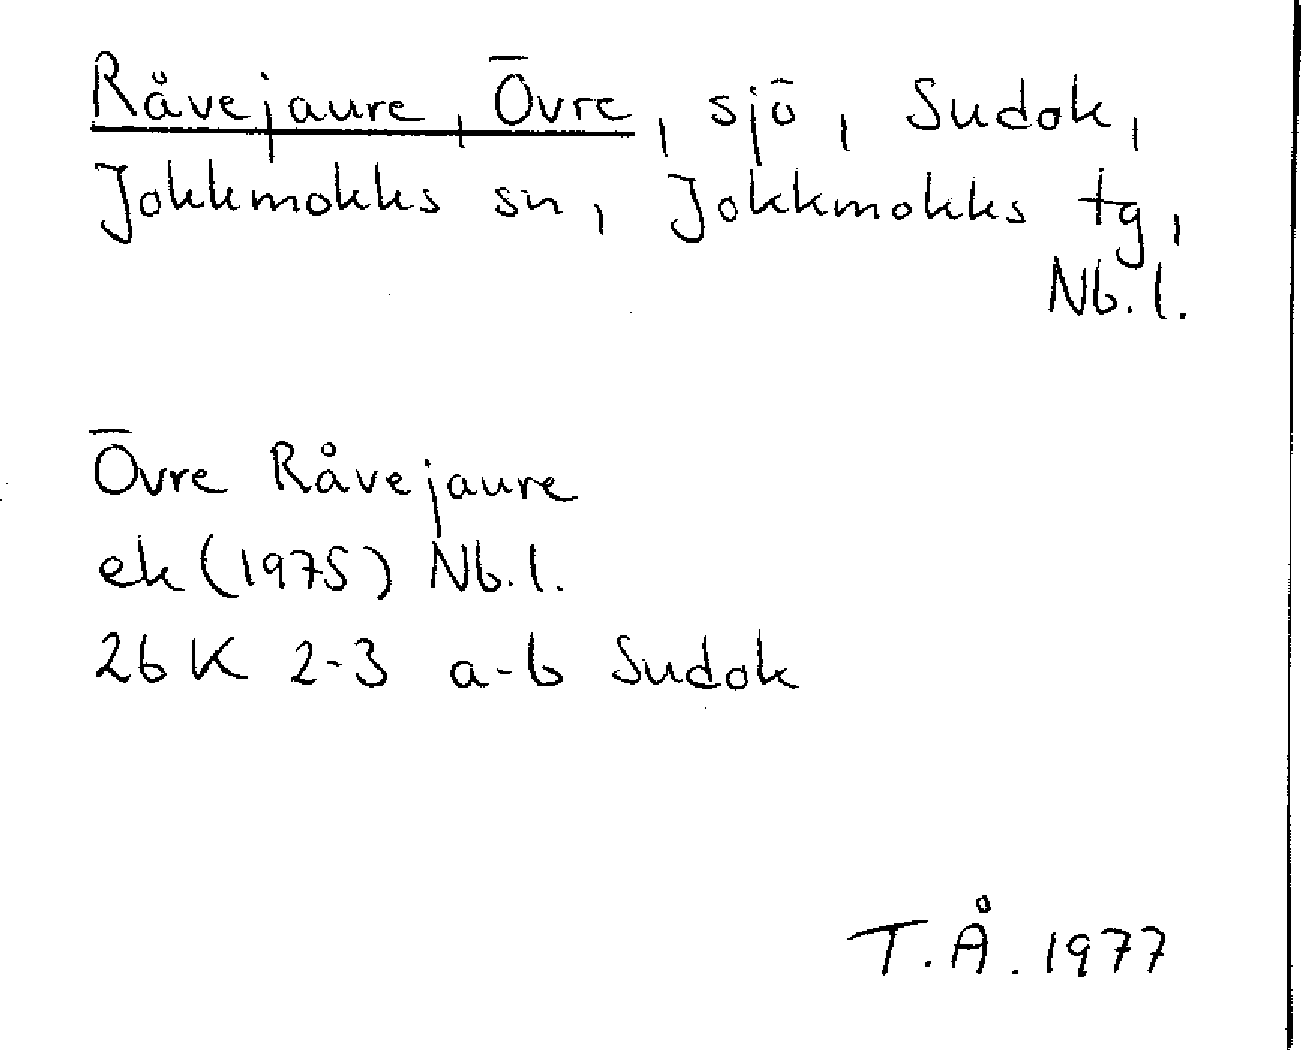 Råvejaure, Övre, sjö, Sudok,
Jokkmokks sn, Jokkmokks tg,
Nb.l.
Övre Råvejaure
ek (1975) Nb.l.
26 K 2-3 a-b Sudok
T.Å. 1977